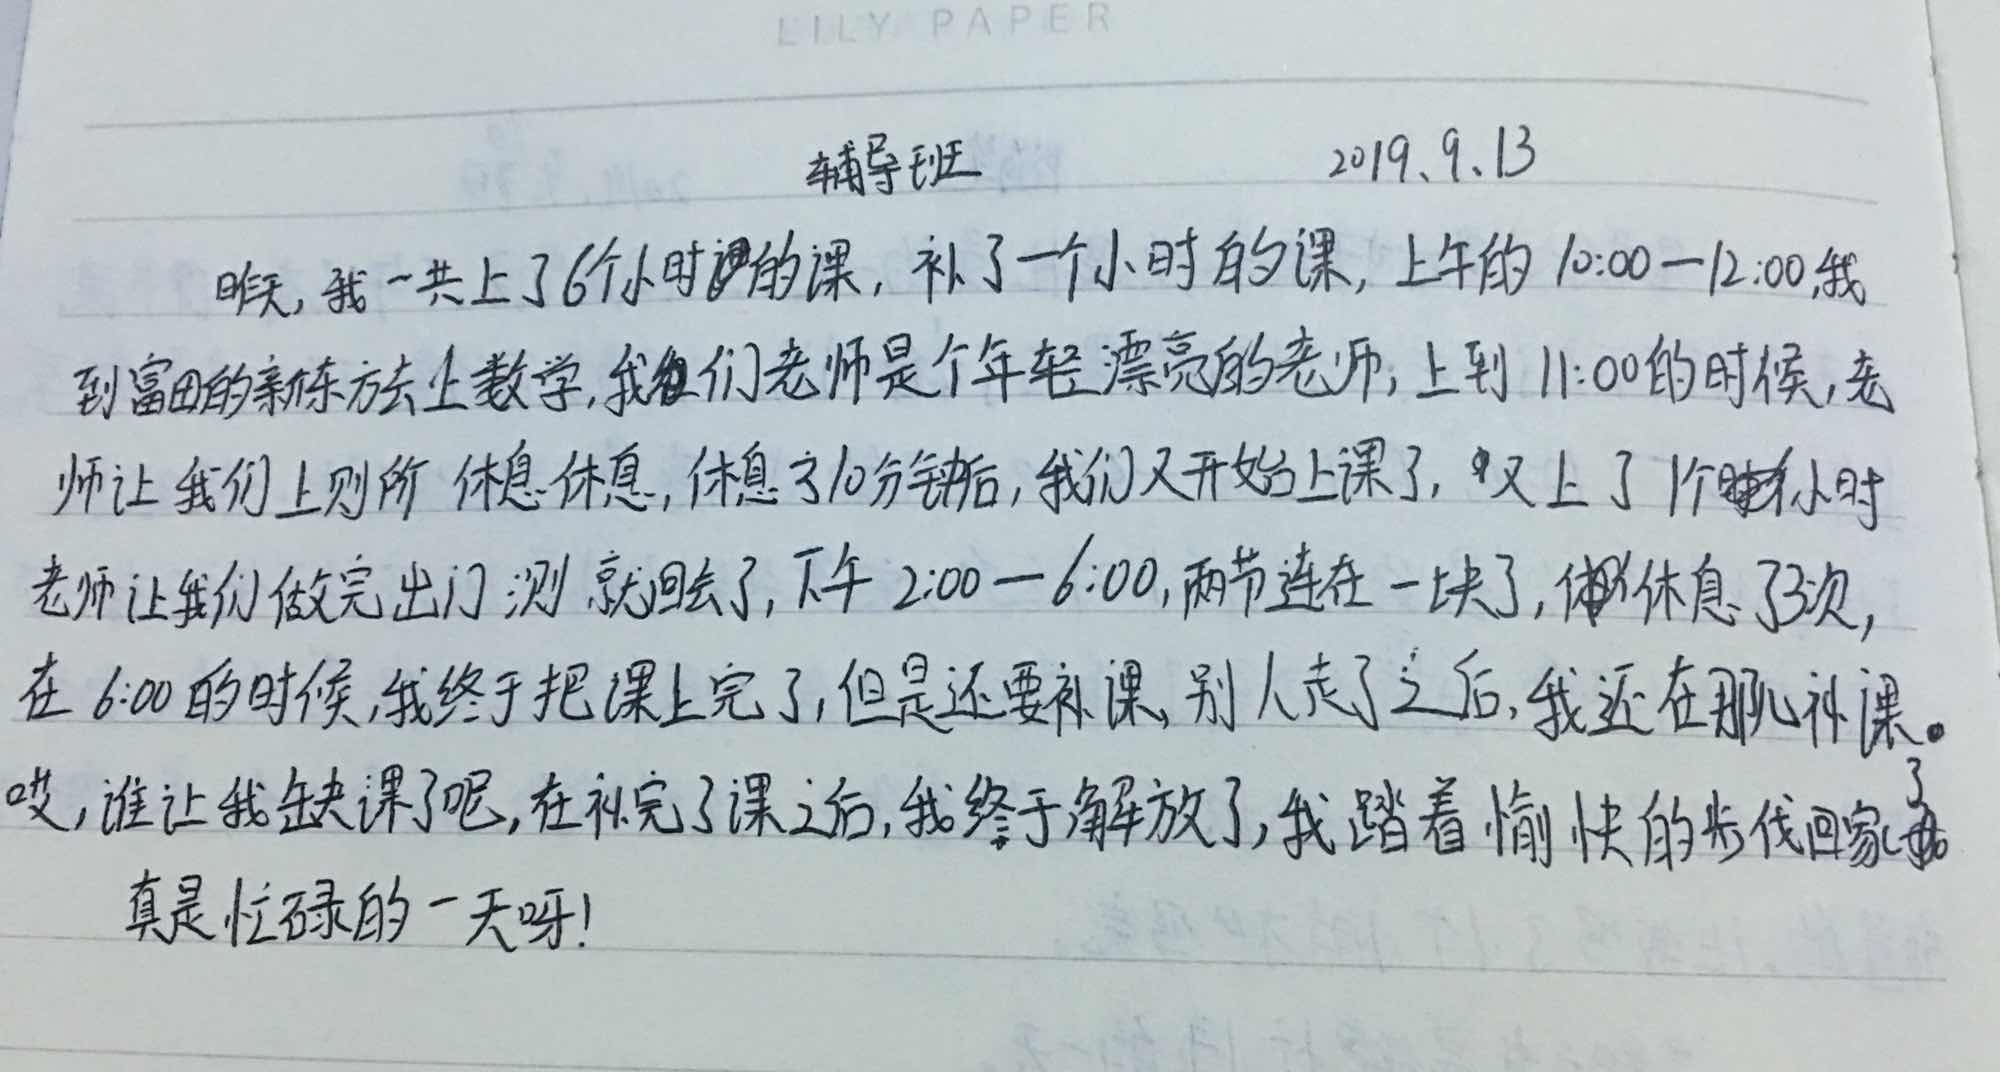 LILY PAPER
辅导班 2019.9.13
昨天,我一共上了6个小时的课,补了一个小时的课,上午的10:00—12:00,我
到富田的新东方去上数学,我们老师是个年轻漂亮的老师,上到11:00的时候,老
师让我们上则所 休息休息,休息了10分钟后,我们又开始上课了,又上了1个小时
老师让我们做完出门测就回去了,下午2:00—6:00,两节连在一块了,休息了3次,
在6:00的时候,我终于把课上完了,但是还要补课,别人走了之后,我还在那儿补课。
哎,谁让我缺课了呢,在补完了课之后,我终于解放了,我踏着愉快的步伐回家了
真是忙碌的一天呀!